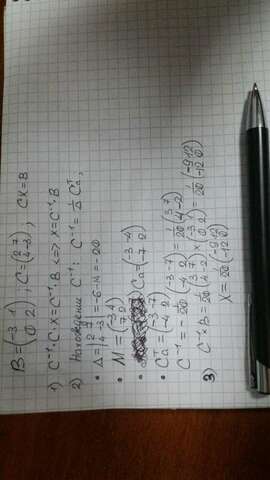 B = (-3 1; 0 2), C = (2 7; 4 -3), CX = B
1) C⁻¹·C·X = C⁻¹·B <=> X = C⁻¹·B
2) Нахождение C⁻¹: C⁻¹ = 1/Δ Cᵀ;
• Δ = |2 7; 4 -3| = -6-14 = -20
• M = (-3 4; 7 2)
• Ca = (-3 -4; -7 2)
• Caᵀ = (-3 -7; -4 2)
C⁻¹ = -1/20 (-3 -7; -4 2) = 1/20 (3 7; 4 -2)
3) C⁻¹·B = 1/20 (3 7; 4 -2) × (-3 1; 0 2) = 1/20 (-9 12; -12 0)
X = 1/20 (-9 12; -12 0)